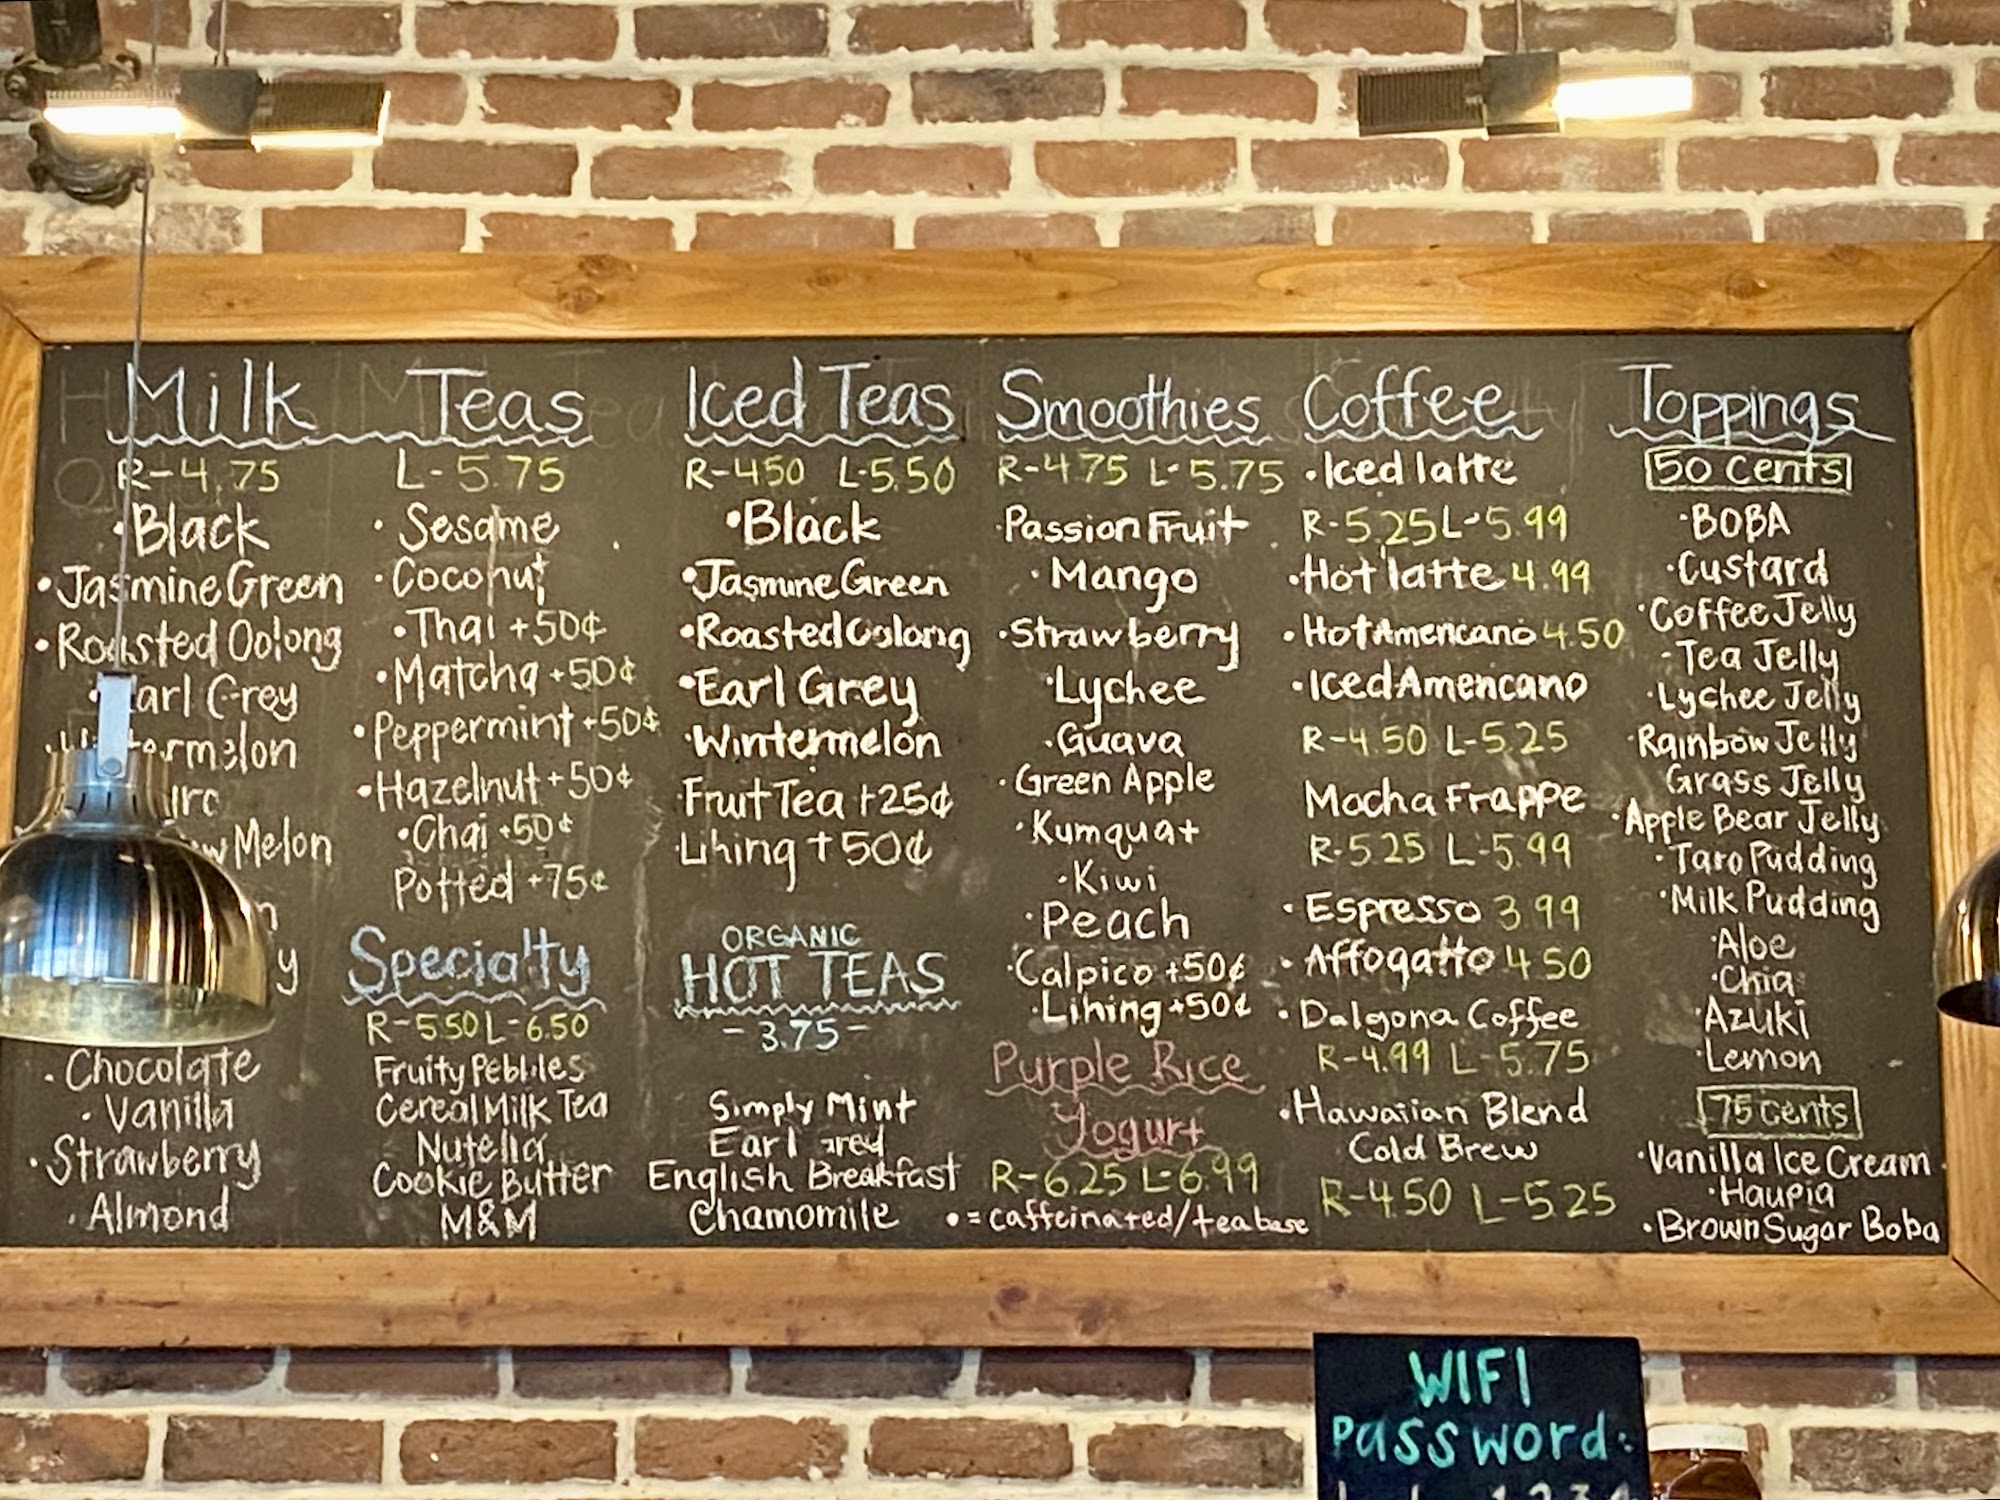 Milk Teas
R-4.75 L-5.75
•Black
•Jasmine Green
•Roasted Oolong
Grey
Melon
Chocolate
•Vanilla
•Strawberry
•Almond
•Sesame
•Coconut
•Thai +50¢
•Matcha +50¢
•Peppermint +50¢
•Hazelnut +50¢
•Chai +50¢
Potted +75¢
Specialty
R-5.50 L-6.50
Fruity Pebbles
Cereal Milk Tea
Nutella
Cookie Butter
M&M
Iced Teas
R-4.50 L-5.50
•Black
•Jasmine Green
•Roasted Oolong
•Earl Grey
•Wintermelon
Fruit Tea +25¢
Lihing +50¢
ORGANIC
HOT TEAS
-3.75-
Simply Mint
Earl
English Breakfast
Chamomile
Smoothies
R-4.75 L-5.75
Passion Fruit
•Mango
•Strawberry
•Lychee
•Guava
•Green Apple
•Kumquat
•Kiwi
•Peach
•Calpico +50¢
•Lihing +50¢
Purple Rice
Yogurt
R-6.25 L-6.99
• = caffeinated/tea base
Coffee
•Iced latte
R-5.25 L-5.99
•Hot latte 4.99
•Hot Americano 4.50
•Iced Americano
R-4.50 L-5.25
Mocha Frappe
R-5.25 L-5.99
•Espresso 3.99
•Affogatto 4.50
•Dalgona Coffee
R-4.99 L-5.75
•Hawaiian Blend
Cold Brew
R-4.50 L-5.25
Toppings
50 Cents
•BOBA
•Custard
•Coffee Jelly
•Tea Jelly
•Lychee Jelly
•Rainbow Jelly
Grass Jelly
•Apple Bear Jelly
•Taro Pudding
•Milk Pudding
•Aloe
•Chia
•Azuki
•Lemon
75 cents
•Vanilla Ice Cream
•Haupia
•Brown Sugar Boba
WIFI
Password: